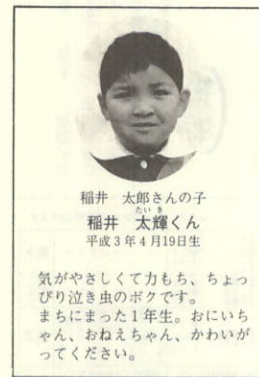 稲井　太郎さんの子
たいき
稲井　太輝くん
平成3年4月19日生
気がやさしくて力もち、ちょっ
ぴり泣き虫のボクです。
まちにまった1年生。おにいち
ゃん、おねえちゃん、かわいが
ってください。